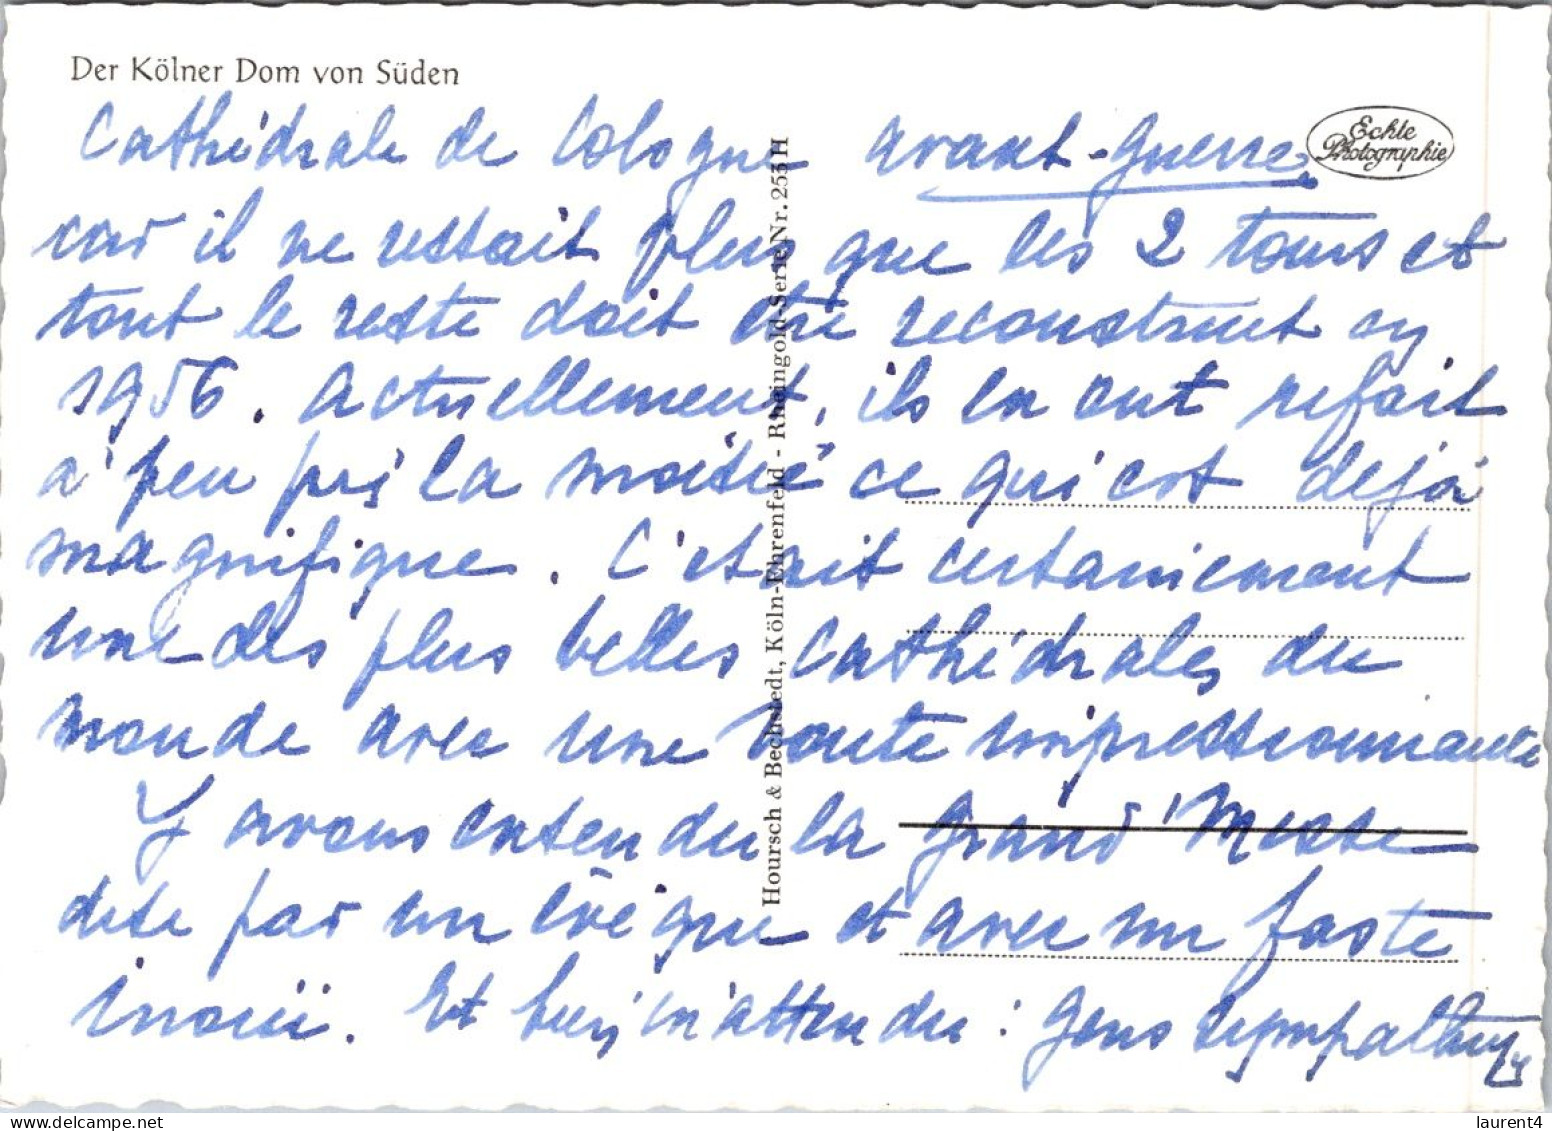 Der Kölner Dom von Süden
Echte
Photographie
Cathédrale de Cologne avant-guerre,
car il ne restait plus que les 2 tours et
tout le reste doit être reconstruit en
1956. Actuellement, ils en ont refait
à peu près la moitié ce qui est déjà
magnifique. C'était certainement
une des plus belles cathédrales du
monde avec une voute impressionnante
Y avons entendu la Grand' Messe
dite par un évêque et avec un faste
inouï. Et inattendu : gens sympathiques
Hoursch & Bechstedt, Köln-Ehrenfeld - Rheingold-Serie Nr. 253 H
laurent4